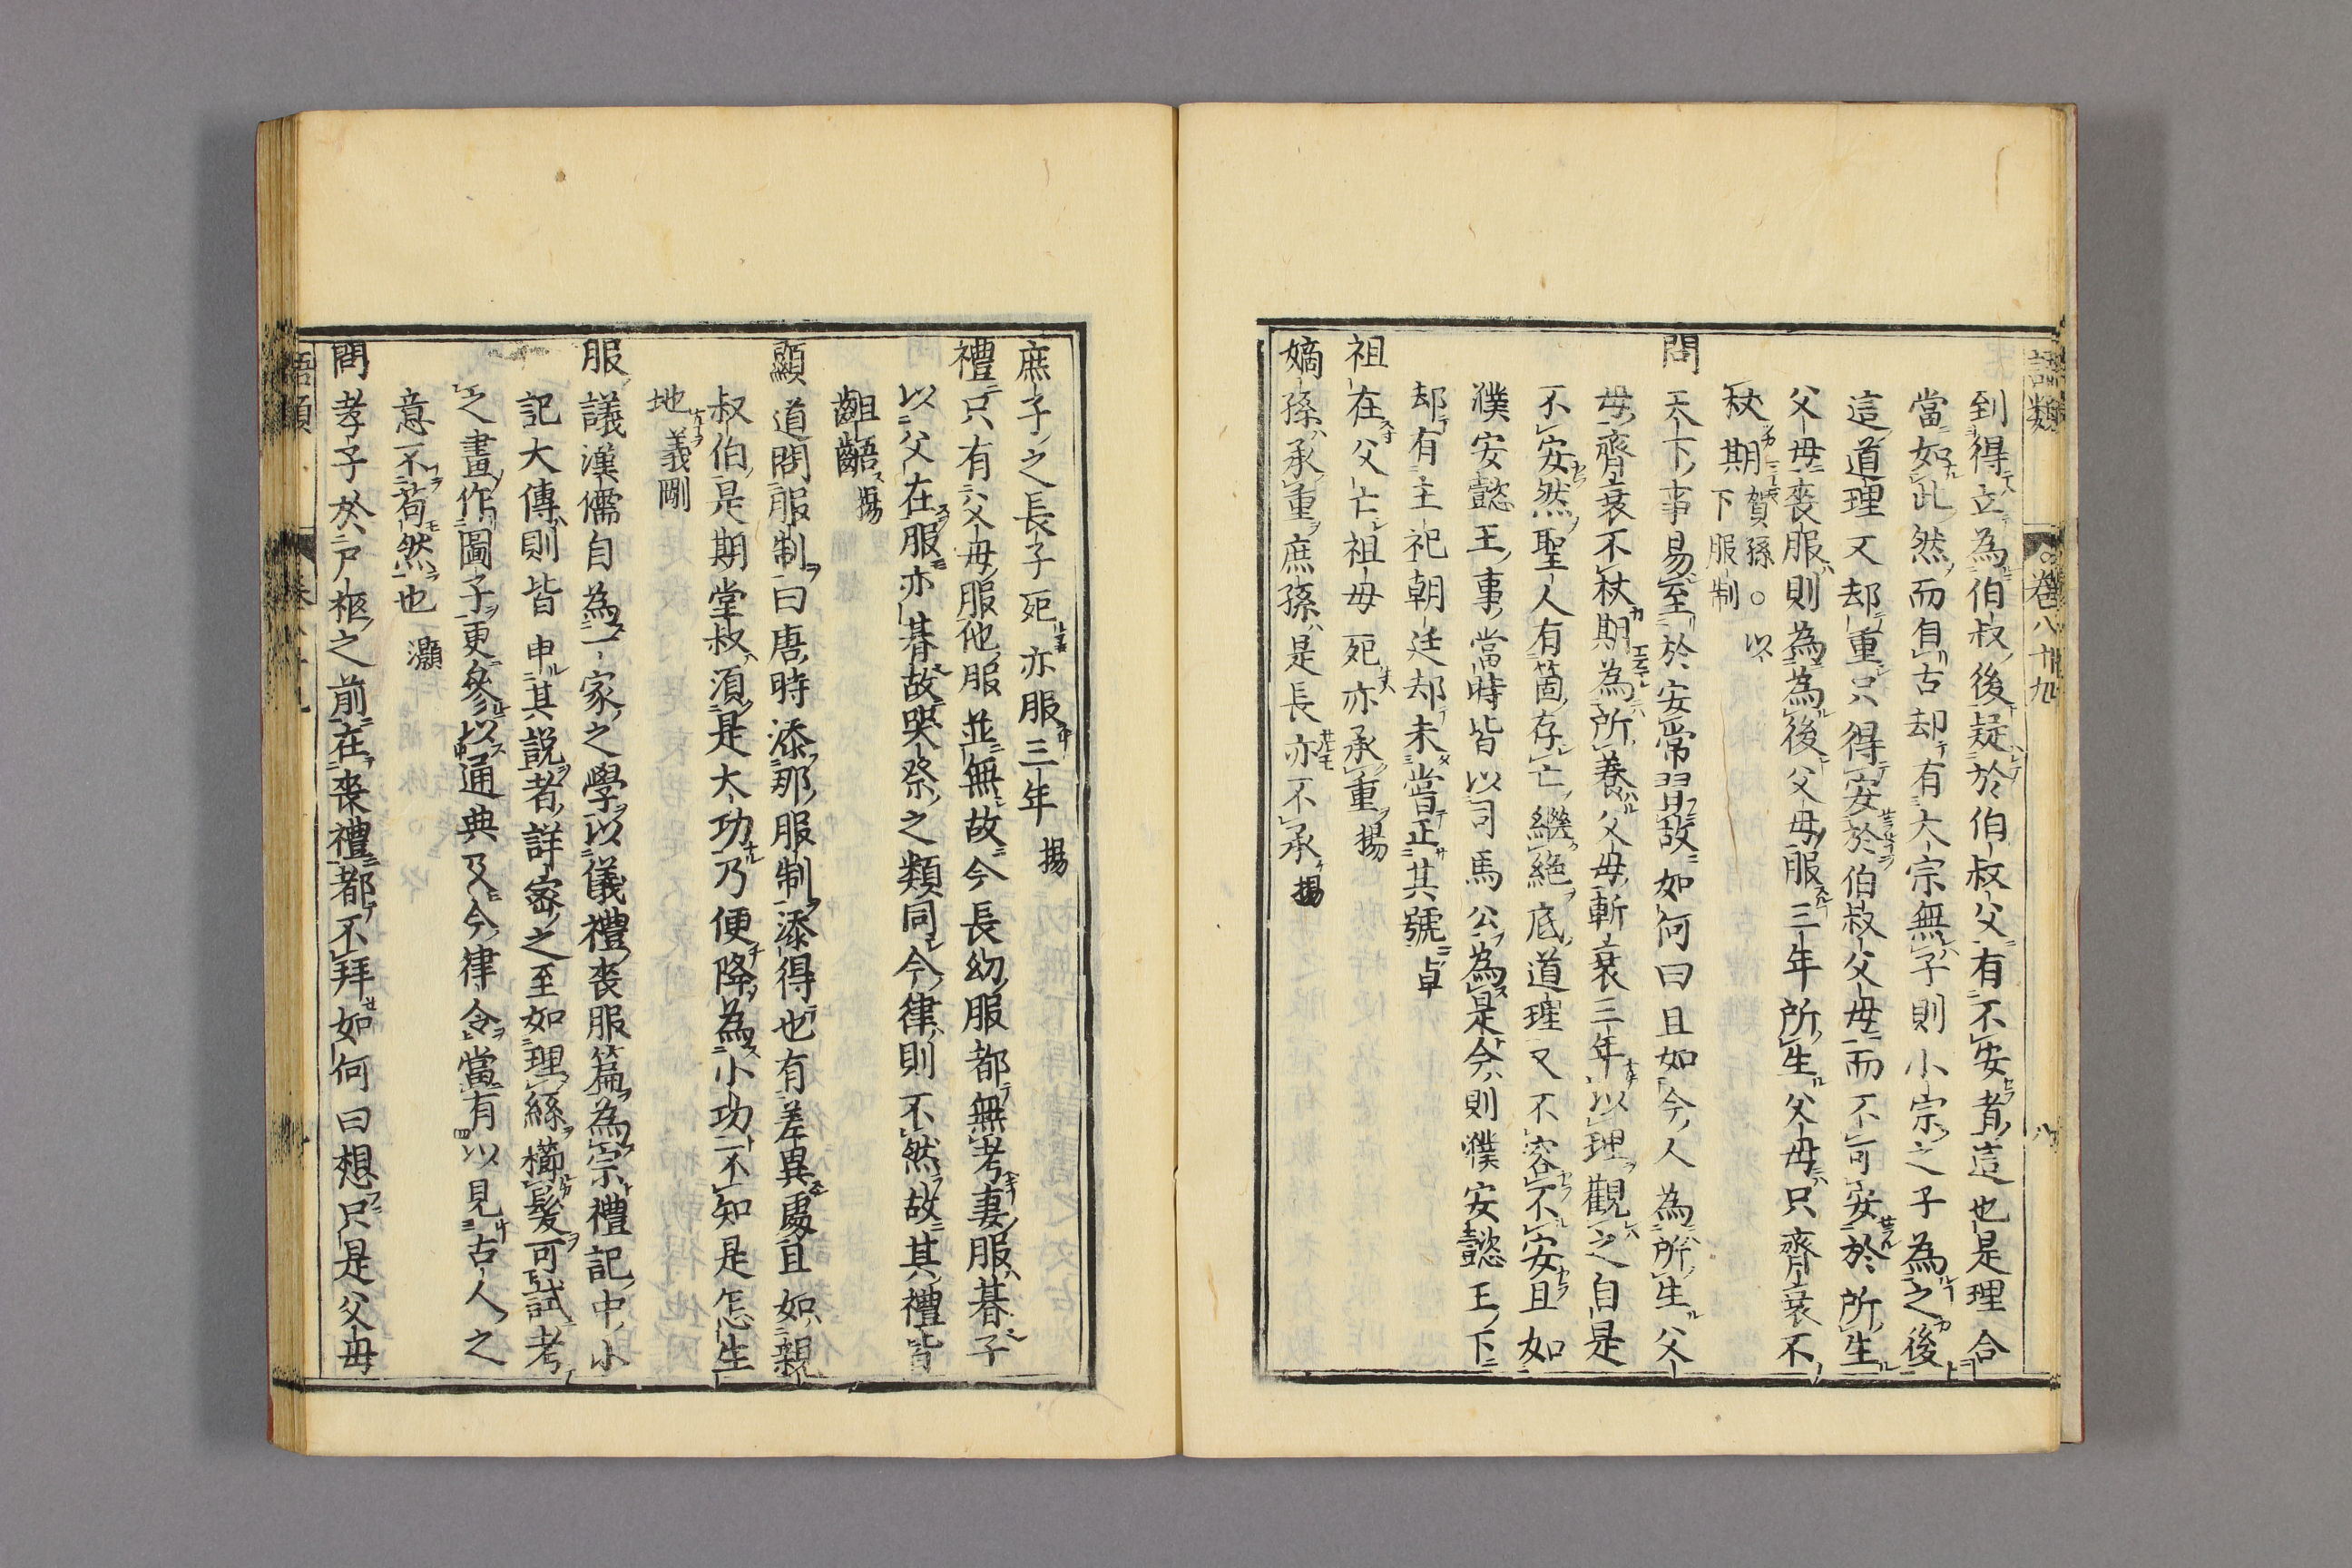 語類 卷八十九 八
到得立為伯叔後疑於伯叔父有不安者這也是理合
當如此然而自古却有大宗無子則小宗之子為之後
這道理又却重只得安於伯叔父母而不可安於所生
父母喪服則為為後父母服三年所生父母只齊衰不
杖期 賀孫○以下服制
問天下事易至於安常習故如何曰且如今人為所生父
母齊衰不杖期為所養父母斬衰三年以理觀之自是
不安然聖人有箇存亡繼絕底道理又不容不安且如
濮安懿王事當時皆以司馬公為是今則濮安懿王下
却有主祀朝廷却未嘗正其號 卓
祖在父亡祖母死亦承重 揚
嫡孫承重庶孫是長亦不承 揚
庶子之長子死亦服三年 揚
禮只有父母服他服並無故今長幼服都無考妻服朞子
以父在服亦朞故哭祭之類同今律則不然故其禮皆
齟齬 揚
顯道問服制曰唐時添那服制添得也有差異處且如親
叔伯是期堂叔須是大功乃便降為小功不知是怎生
地 義剛
服議漢儒自為一家之學以儀禮喪服篇為宗禮記中小
記大傳則皆申其說者詳密之至如理絲櫛髮可試考
之畫作圖子更參以通典及今律令當有以見古人之
意不苟然也 灝
問孝子於尸柩之前在喪禮都不拜如何曰想只是父母
語類